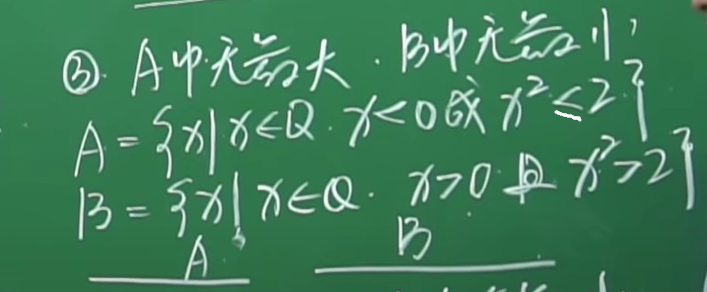 ③. A中无最大. B中无最小
A={x|x∈Q. x<0或x²≤2}
B={x|x∈Q. x>0且x²>2}
A B